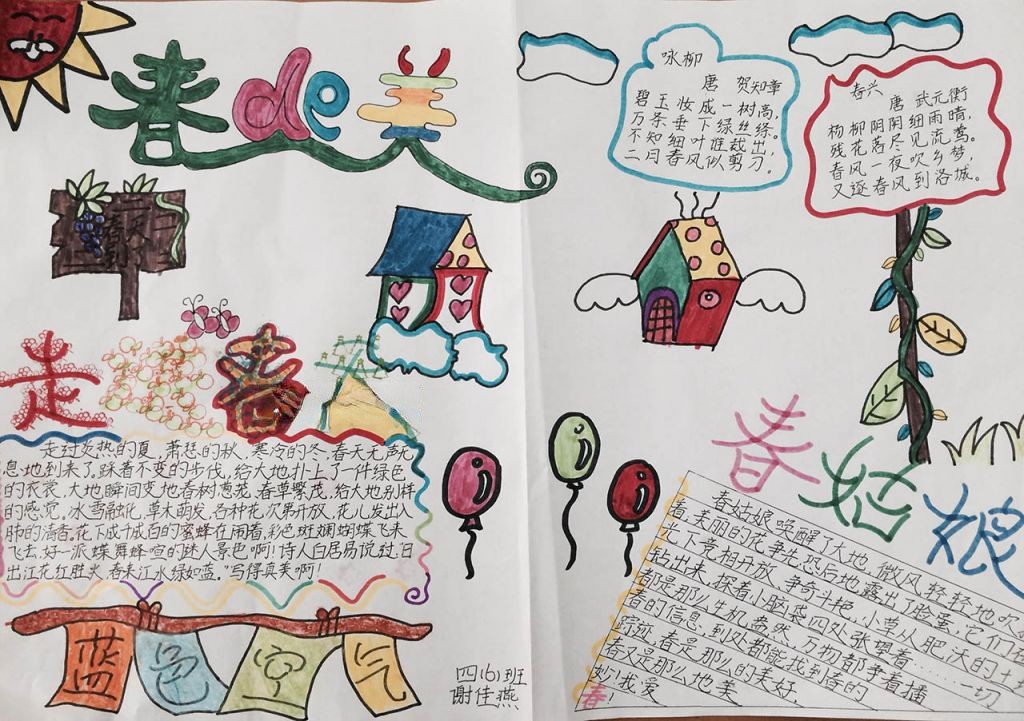 春de美
春天
到了
走 春
走过炎热的夏,萧瑟的秋,寒冷的冬,春天无声无
息地到来了,踩着不变的步伐,给大地扑上了一件绿色
的衣裳,大地瞬间变地春树葱茏,春草繁茂,给大地别样
的感觉。冰雪融化,草木萌发,各种花次第开放,花儿发出入
肺的清香。花下成千成百的蜜蜂在闹着,彩色斑斓蝴蝶飞来
飞去,好一派蝶舞蜂喧的迷人景色啊!诗人白居易说过,"日
出江花红胜火,春来江水绿如蓝。"写得真美啊!
蓝色空气
四(6)班
谢佳燕
咏柳
唐 贺知章
碧玉妆成一树高,
万条垂下绿丝绦。
不知细叶谁裁出,
二月春风似剪刀。
春兴
唐 武元衡
杨柳阴阴细雨晴,
残花落尽见流莺。
春风一夜吹乡梦,
又逐春风到洛城。
春姑娘
春姑娘唤醒了大地,微风轻轻地吹
着,美丽的花争先恐后地露出了脸蛋,它们在
光下竞相开放,争奇斗艳,小草从肥沃的土
钻出来,探着小脑袋四处张望着……一切
都是那么生机盎然,万物都争着播
春的信息,到处都能找到春的
踪迹,春是那么的美好,
春又是那么地美
妙!我爱
春!